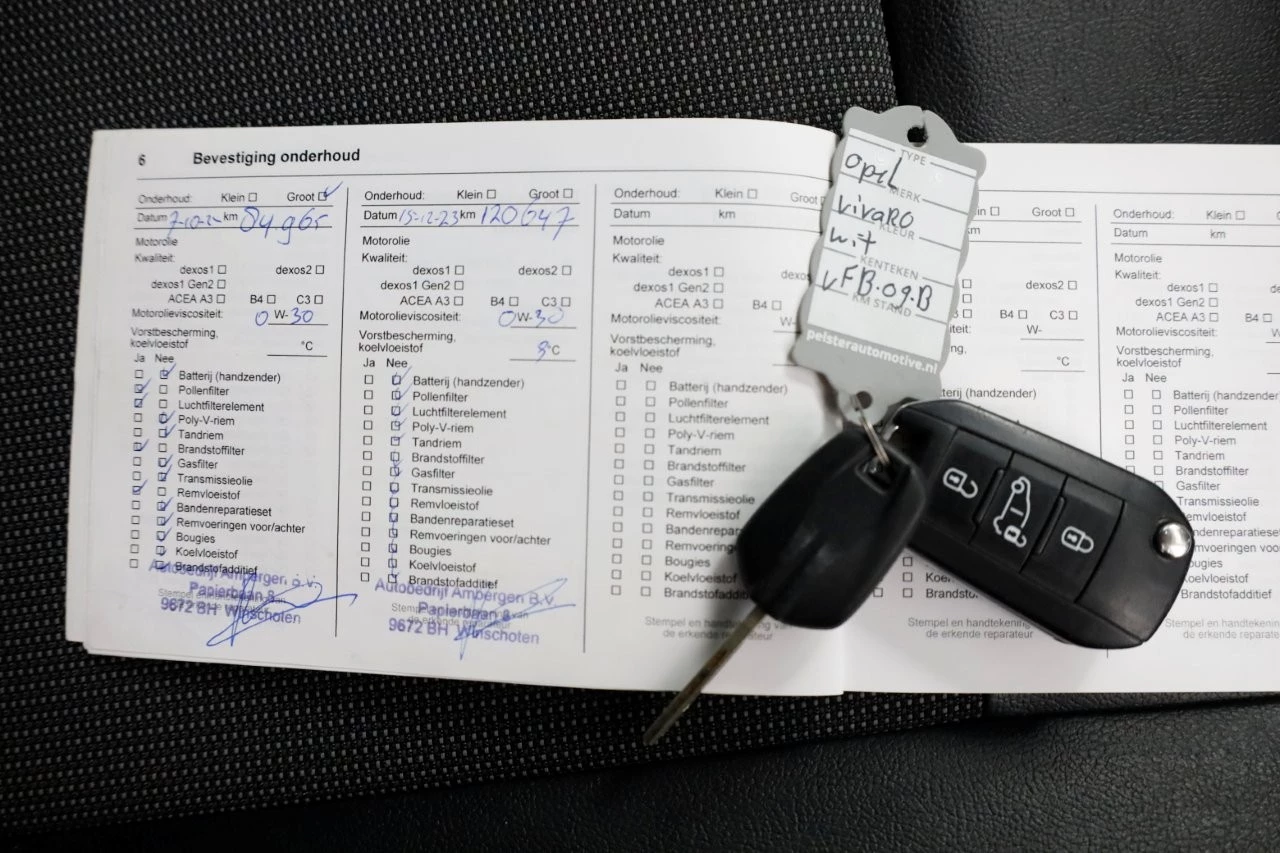 6 Bevestiging onderhoud
Onderhoud: Klein Groot
Datum km 84965
Motorolie
Kwaliteit:
dexos1 dexos2
dexos1 Gen2
ACEA A3 B4 C3
Motorolieviscositeit: 0 W-30
Vorstbescherming,
koelvloeistof °C
Ja Nee
Batterij (handzender)
Pollenfilter
Luchtfilterelement
Poly-V-riem
Tandriem
Brandstoffilter
Gasfilter
Transmissieolie
Remvloeistof
Bandenreparatieset
Remvoeringen voor/achter
Bougies
Koelvloeistof
Brandstofadditief
Autobedrijf Ambergen B.V.
Papierbaan 8
9672 BH Winschoten
Onderhoud: Klein Groot
Datum 15-12-23 km 120647
Motorolie
Kwaliteit:
dexos1 dexos2
dexos1 Gen2
ACEA A3 B4 C3
Motorolieviscositeit: 0W-30
Vorstbescherming,
koelvloeistof °C
Ja Nee
Batterij (handzender)
Pollenfilter
Luchtfilterelement
Poly-V-riem
Tandriem
Brandstoffilter
Gasfilter
Transmissieolie
Remvloeistof
Bandenreparatieset
Remvoeringen voor/achter
Bougies
Koelvloeistof
Brandstofadditief
Autobedrijf Ambergen B.V.
Papierbaan 8
9672 BH Winschoten
Onderhoud: Klein Groot
Datum km
Motorolie
Kwaliteit:
dexos1
dexos1 Gen2
ACEA A3 B4
Motorolieviscositeit: W-
Vorstbescherming,
koelvloeistof
Ja Nee
Batterij (handzender)
Pollenfilter
Luchtfilterelement
Poly-V-riem
Tandriem
Brandstoffilter
Gasfilter
Transmissieolie
Remvloeistof
Bandenrepar
Remvoering
Bougies
Koelvloeistof
Brandstofadditief
Stempel en handtekening van
de erkende reparateur
TYPE
Opel
MERK
vivaRO
KLEUR
wit
KENTEKEN
VFB.09.B
KM STAND
pelsterautomotive.nl
Groot
dexos2
B4 C3
W-
°C
Koel
Brandsto
Stempel en handtekening
de erkende reparateur
Onderhoud: Klein
Datum km
Motorolie
Kwaliteit:
dexos1
dexos1 Gen2
ACEA A3 B4
Motorolieviscositeit: W
Vorstbescherming,
koelvloeistof
Ja Nee
Batterij (handzender
Pollenfilter
Luchtfilterelement
Poly-V-riem
Tandriem
Brandstoffilter
Gasfilter
Transmissieolie
emvloeistof
ndenreparatieset
mvoeringen voor/achter
ugies
Koelvloeistof
Brandstofadditief
Stempel en handtekening
de erkende reparateur